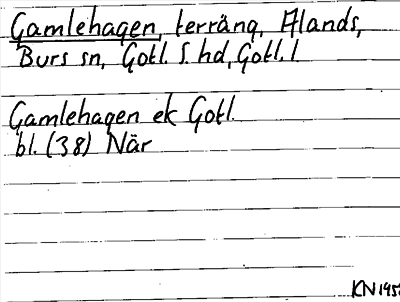 Gamlehagen, terräng, Ålands,
Burs sn, Gotl. S. hd, Gotl. l
Gamlehagen ek Gotl.
bl. (38) När